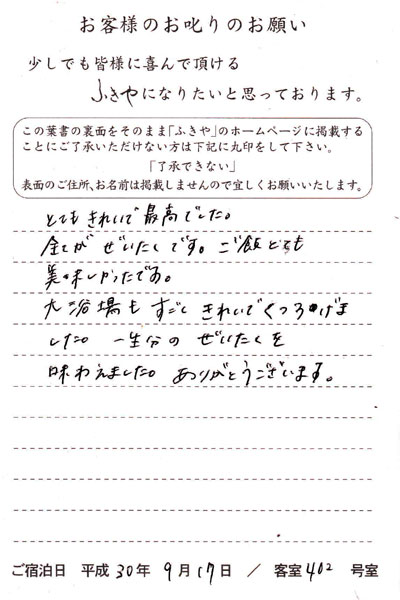 お客様のお叱りのお願い
少しでも皆様に喜んで頂ける
ふきやになりたいと思っております。
この葉書の裏面をそのまま「ふきや」のホームページに掲載する
ことにご了承いただけない方は下記に丸印をして下さい。
「了承できない」
表面のご住所、お名前は掲載しませんので宜しくお願いいたします。
とてもきれいで最高でした。
全てが ぜいたくです。ご飯とても
美味しかったです。
大浴場も すごく きれいで くつろげま
した。一生分の ぜいたくを
味わえました。ありがとうございます。
ご宿泊日 平成30年 9月17日 / 客室402 号室